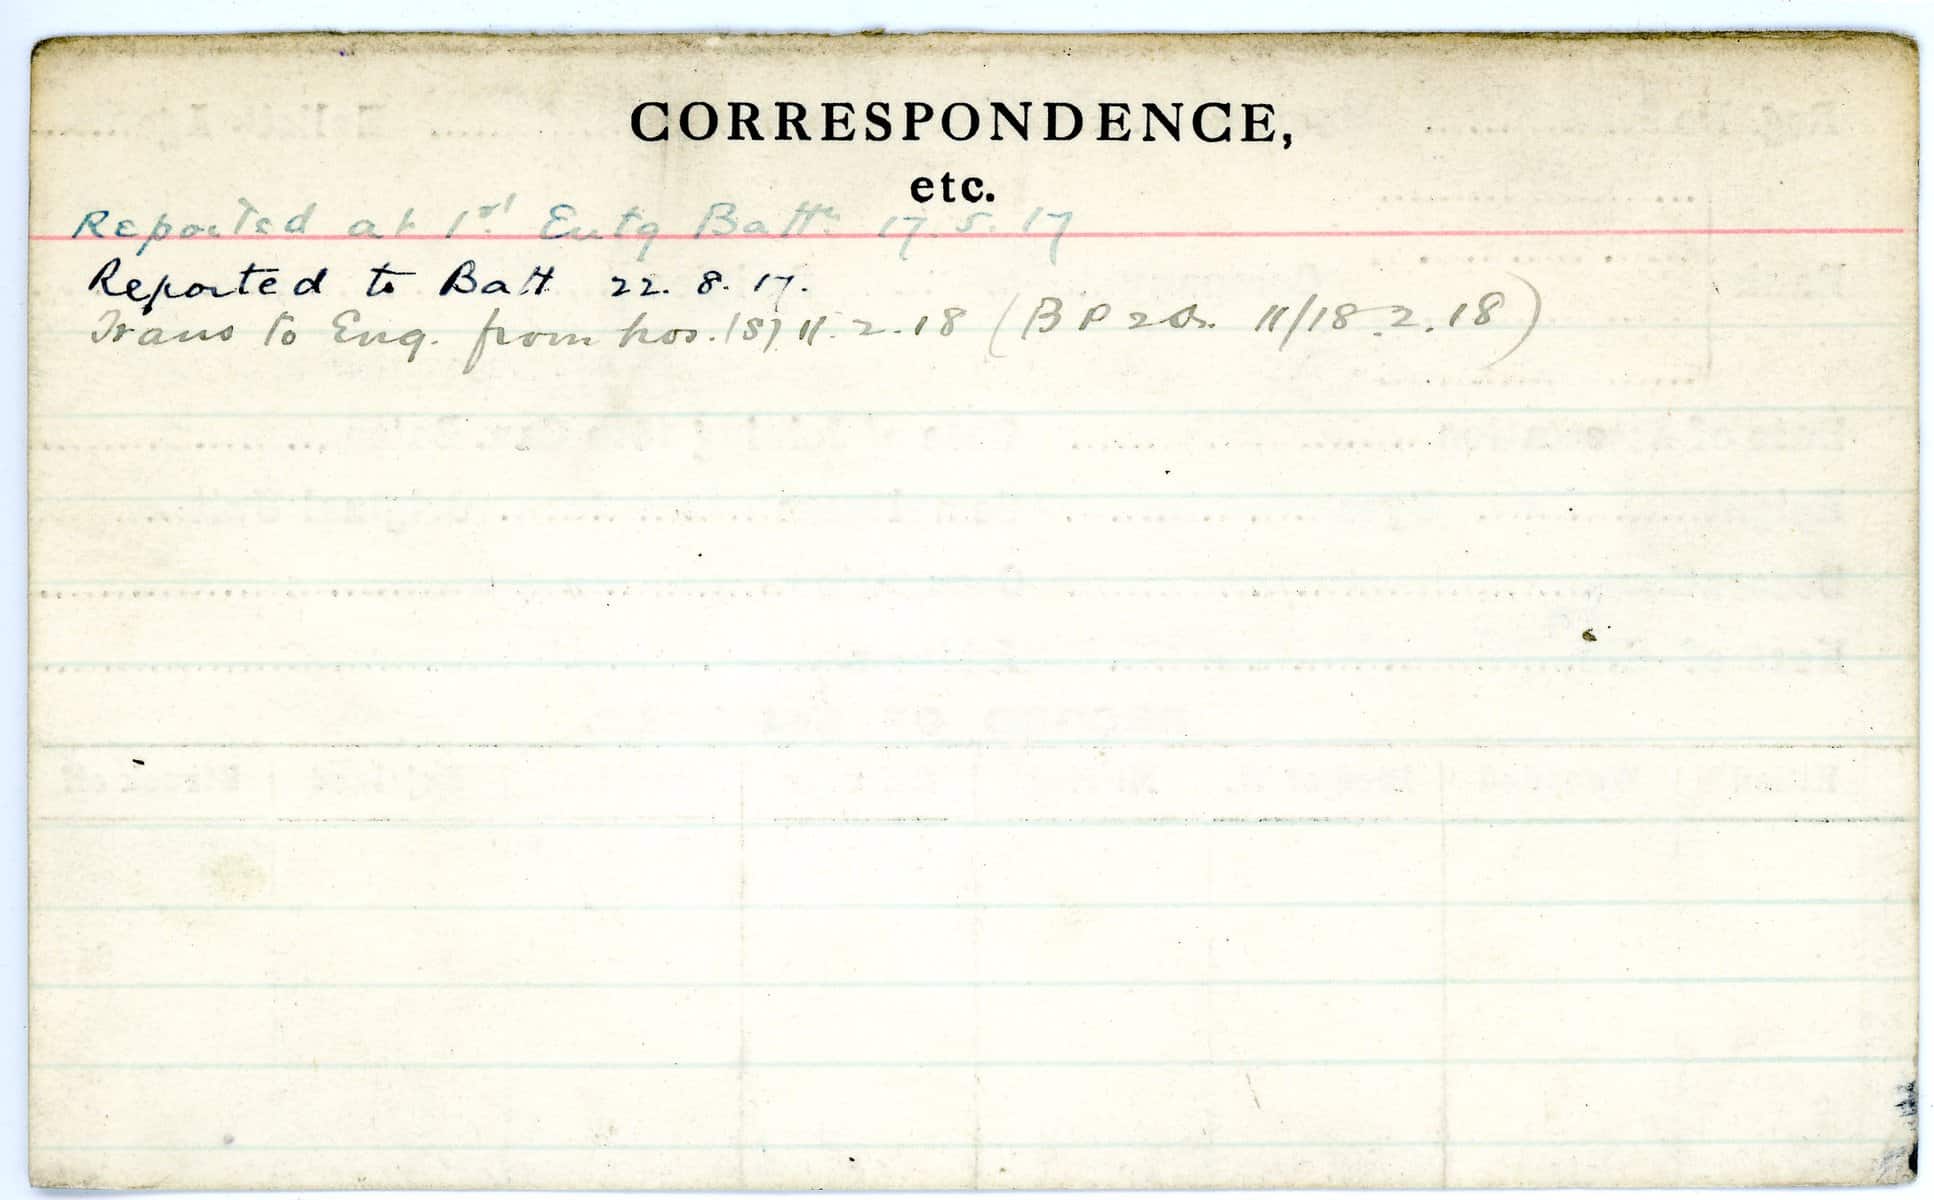 CORRESPONDENCE,
etc.
Reported at 1st Entg Battn 17.5.17
Reported to Batt 22.8.17.
Trans to Eng. from hos. (S) 11.2.18 (B P 11/18.2.18)